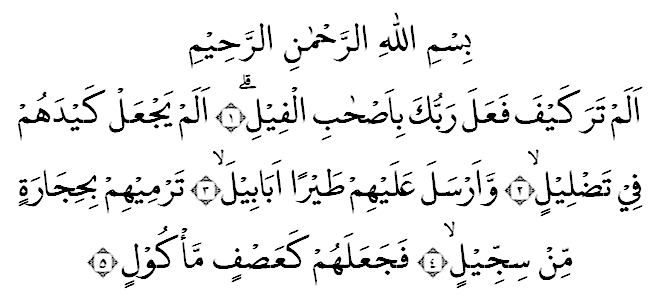 بِسْمِ اللّٰهِ الرَّحْمٰنِ الرَّحِيْمِ
اَلَمْ تَرَ كَيْفَ فَعَلَ رَبُّكَ بِاَصْحٰبِ الْفِيْلِۗ ۝١ اَلَمْ يَجْعَلْ كَيْدَهُمْ
فِيْ تَضْلِيْلٍۙ ۝٢ وَّاَرْسَلَ عَلَيْهِمْ طَيْرًا اَبَابِيْلَۙ ۝٣ تَرْمِيْهِمْ بِحِجَارَةٍ
مِّنْ سِجِّيْلٍۙ ۝٤ فَجَعَلَهُمْ كَعَصْفٍ مَّأْكُوْلٍ ۝٥